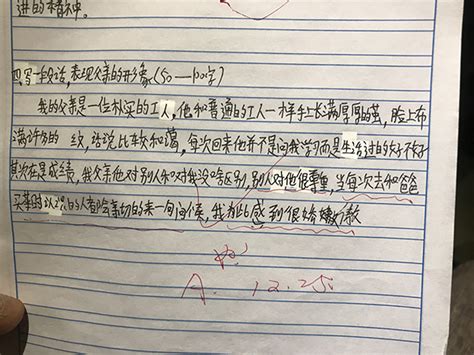 进的精神。
四、写一段话,表现父亲的形象(50—100字)
我的父亲是一位朴实的工人,他和普通的工人一样手上长满厚厚的茧,脸上布
满许多的 纹,话说比较和蔼,每次回来他并不是问我学习而是生活过的好不好
其次在是成绩,我父亲他对别人和对我没啥区别,别人对他很尊重,当每次去和爸爸
买菜时认识的人都会亲切的来一句问候,我为此感到很
A. 12.25